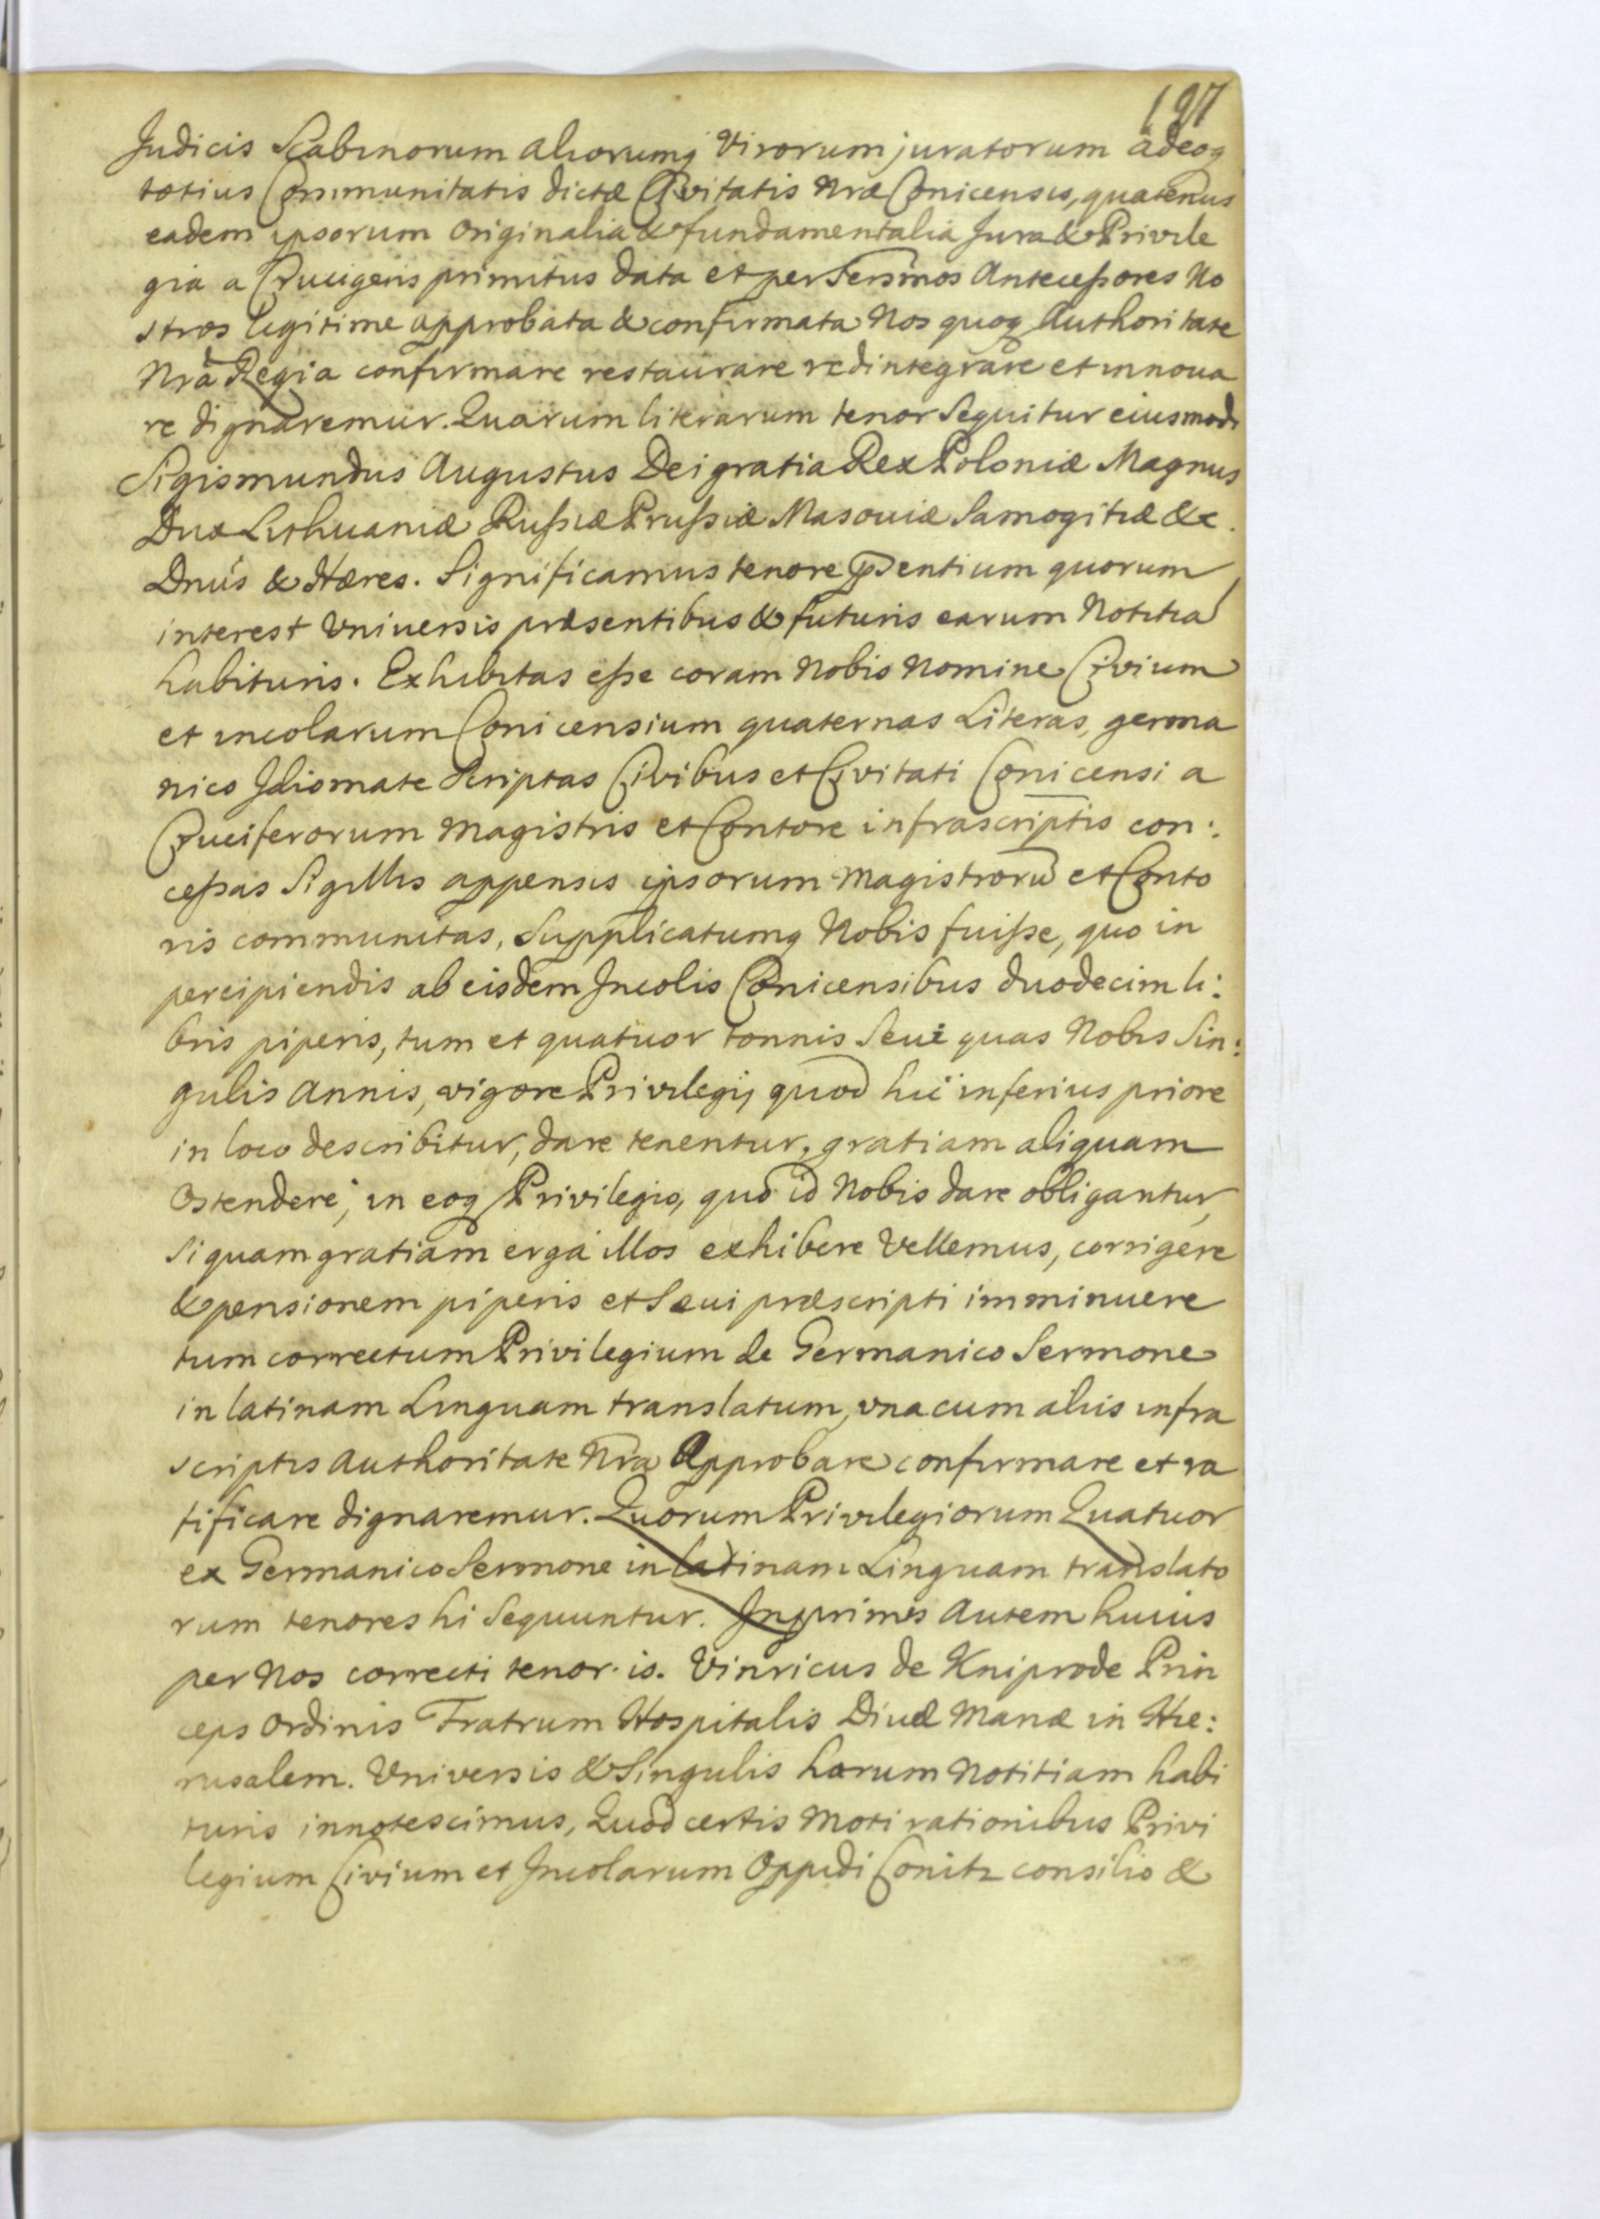 127
Judicis Scabinorum aliorumq Virorum juratorum adeoq
totius Communitatis dictæ Civitatis Nræ Conicensis, quatenus
eadem ipsorum originalia & fundamentalia Jura & Privile
gia a Crucigeris primitus data et per Sersmos Antecessores No
stros legitime approbata & confirmata Nos quoq Authoritate
Nrâ Regia confirmare restaurare redintegrare et innoua
re dignaremur. Quarum literarum tenor Sequitur eiusmodi
Sigismundus Augustus Dei gratia Rex Poloniæ Magnus
Dux Lithuaniæ Russiæ Prussiæ Masouiæ Samogitiæ &c.
Dnus & Hæres. Significamus tenore pntium quorum
interest Vniuersis præsentibus & futuris earum Notitiã
habituris. Exhibitas esse coram Nobis Nomine Civium
et incolarum Conicensium quaternas Literas, germa
nico Idiomate Scriptas Civibus et Civitati Conicensi a
Cruciferorum Magistris et Contore infrascriptis con:
cessas Sigillis appensis ipsorum Magistrorũ et Conto
ris communitas, Supplicatumq Nobis fuisse, quo in
percipiendis ab eisdem Incolis Conicensibus duodecim li:
bris piperis, tum et quatuor tonnis Seui quas Nobis Sin:
gulis Annis, vigore Privilegij quod hic inferius priore
in loco describitur, dare tenentur, gratiam aliquam
Ostendere, in eoq Privilegio, quo id Nobis dare obligantur,
Si quam gratiam erga illos exhibere Vellemus, corrigere
& pensionem piperis et Seui præscripti imminuere
tum correctum Privilegium de Germanico Sermone
in latinam Linguam translatum, vna cum aliis infra
scriptis Authoritate Nra Approbare confirmare et ra
tificare dignaremur. Quorum Privilegiorum Quatuor
ex Germanico Sermone in latinam Linguam translato
rum tenores hi Sequuntur. Inprimis Autem huius
per Nos correcti tenor is. Vinricus de Kniprode Prin
ceps Ordinis Fratrum Hospitalis Diuæ Mariæ in Hie:
rusalem. Vniversis & Singulis harum Notitiam habi
turis innotescimus, Quod certis Moti rationibus Privi
legium Civium et Incolarum Oppidi Conitz consilio &